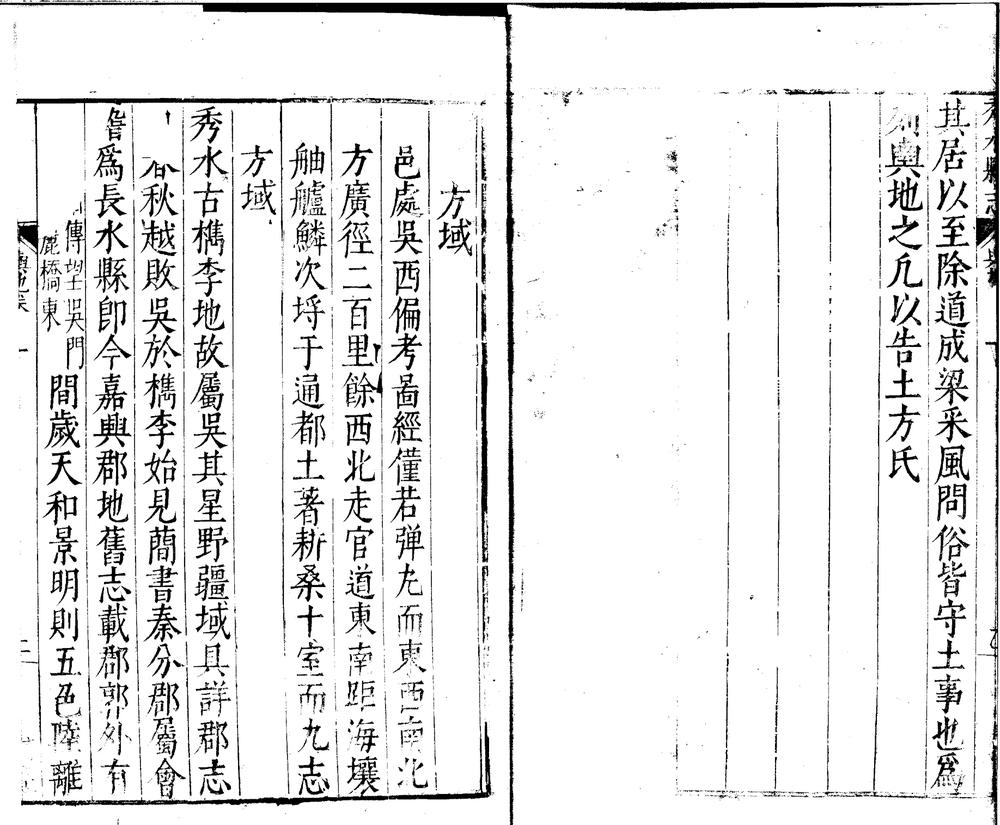 秀水縣志
其居以至除道成梁采風問俗皆守土事也爲
列輿地之凡以告土方氏
方域
邑處吳西偏考啚經僅若弹丸而東西南北
方廣徑二百里餘西北走官道東南距海壤
舳艫鱗次埒于通都土著耕桑十室而九志
方域
秀水古檇李地故屬吳其星野疆域具詳郡志
春秋越敗吳於檇李始見蕳書秦分郡屬會
爲長水縣卽今嘉興郡地舊志載郡郭外有
傳望吳門
鹿橋東
間歲天和景明則五色陸離
輿地卷一